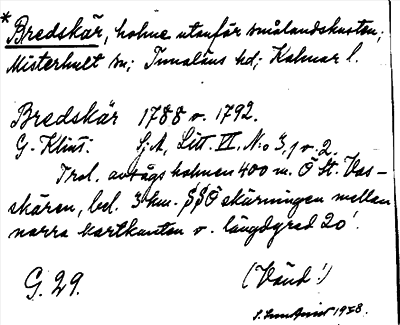 * Bredskär, holme utanför smålandskusten;
Misterhult sn; Tunaläns hd; Kalmar l.
Bredskär 1788 o. 1792.
G. Klint. Sj.A, Litt. VI, N:o 3,1 o. 2.
Trol. avsågs holmen 400 m. Ö St. Vas-
skären, bel. 3 km. SSÖ skärningen mellan
norra kartkanten o. längdgrad 20'.
G. 29. (Vänd!)
1958.